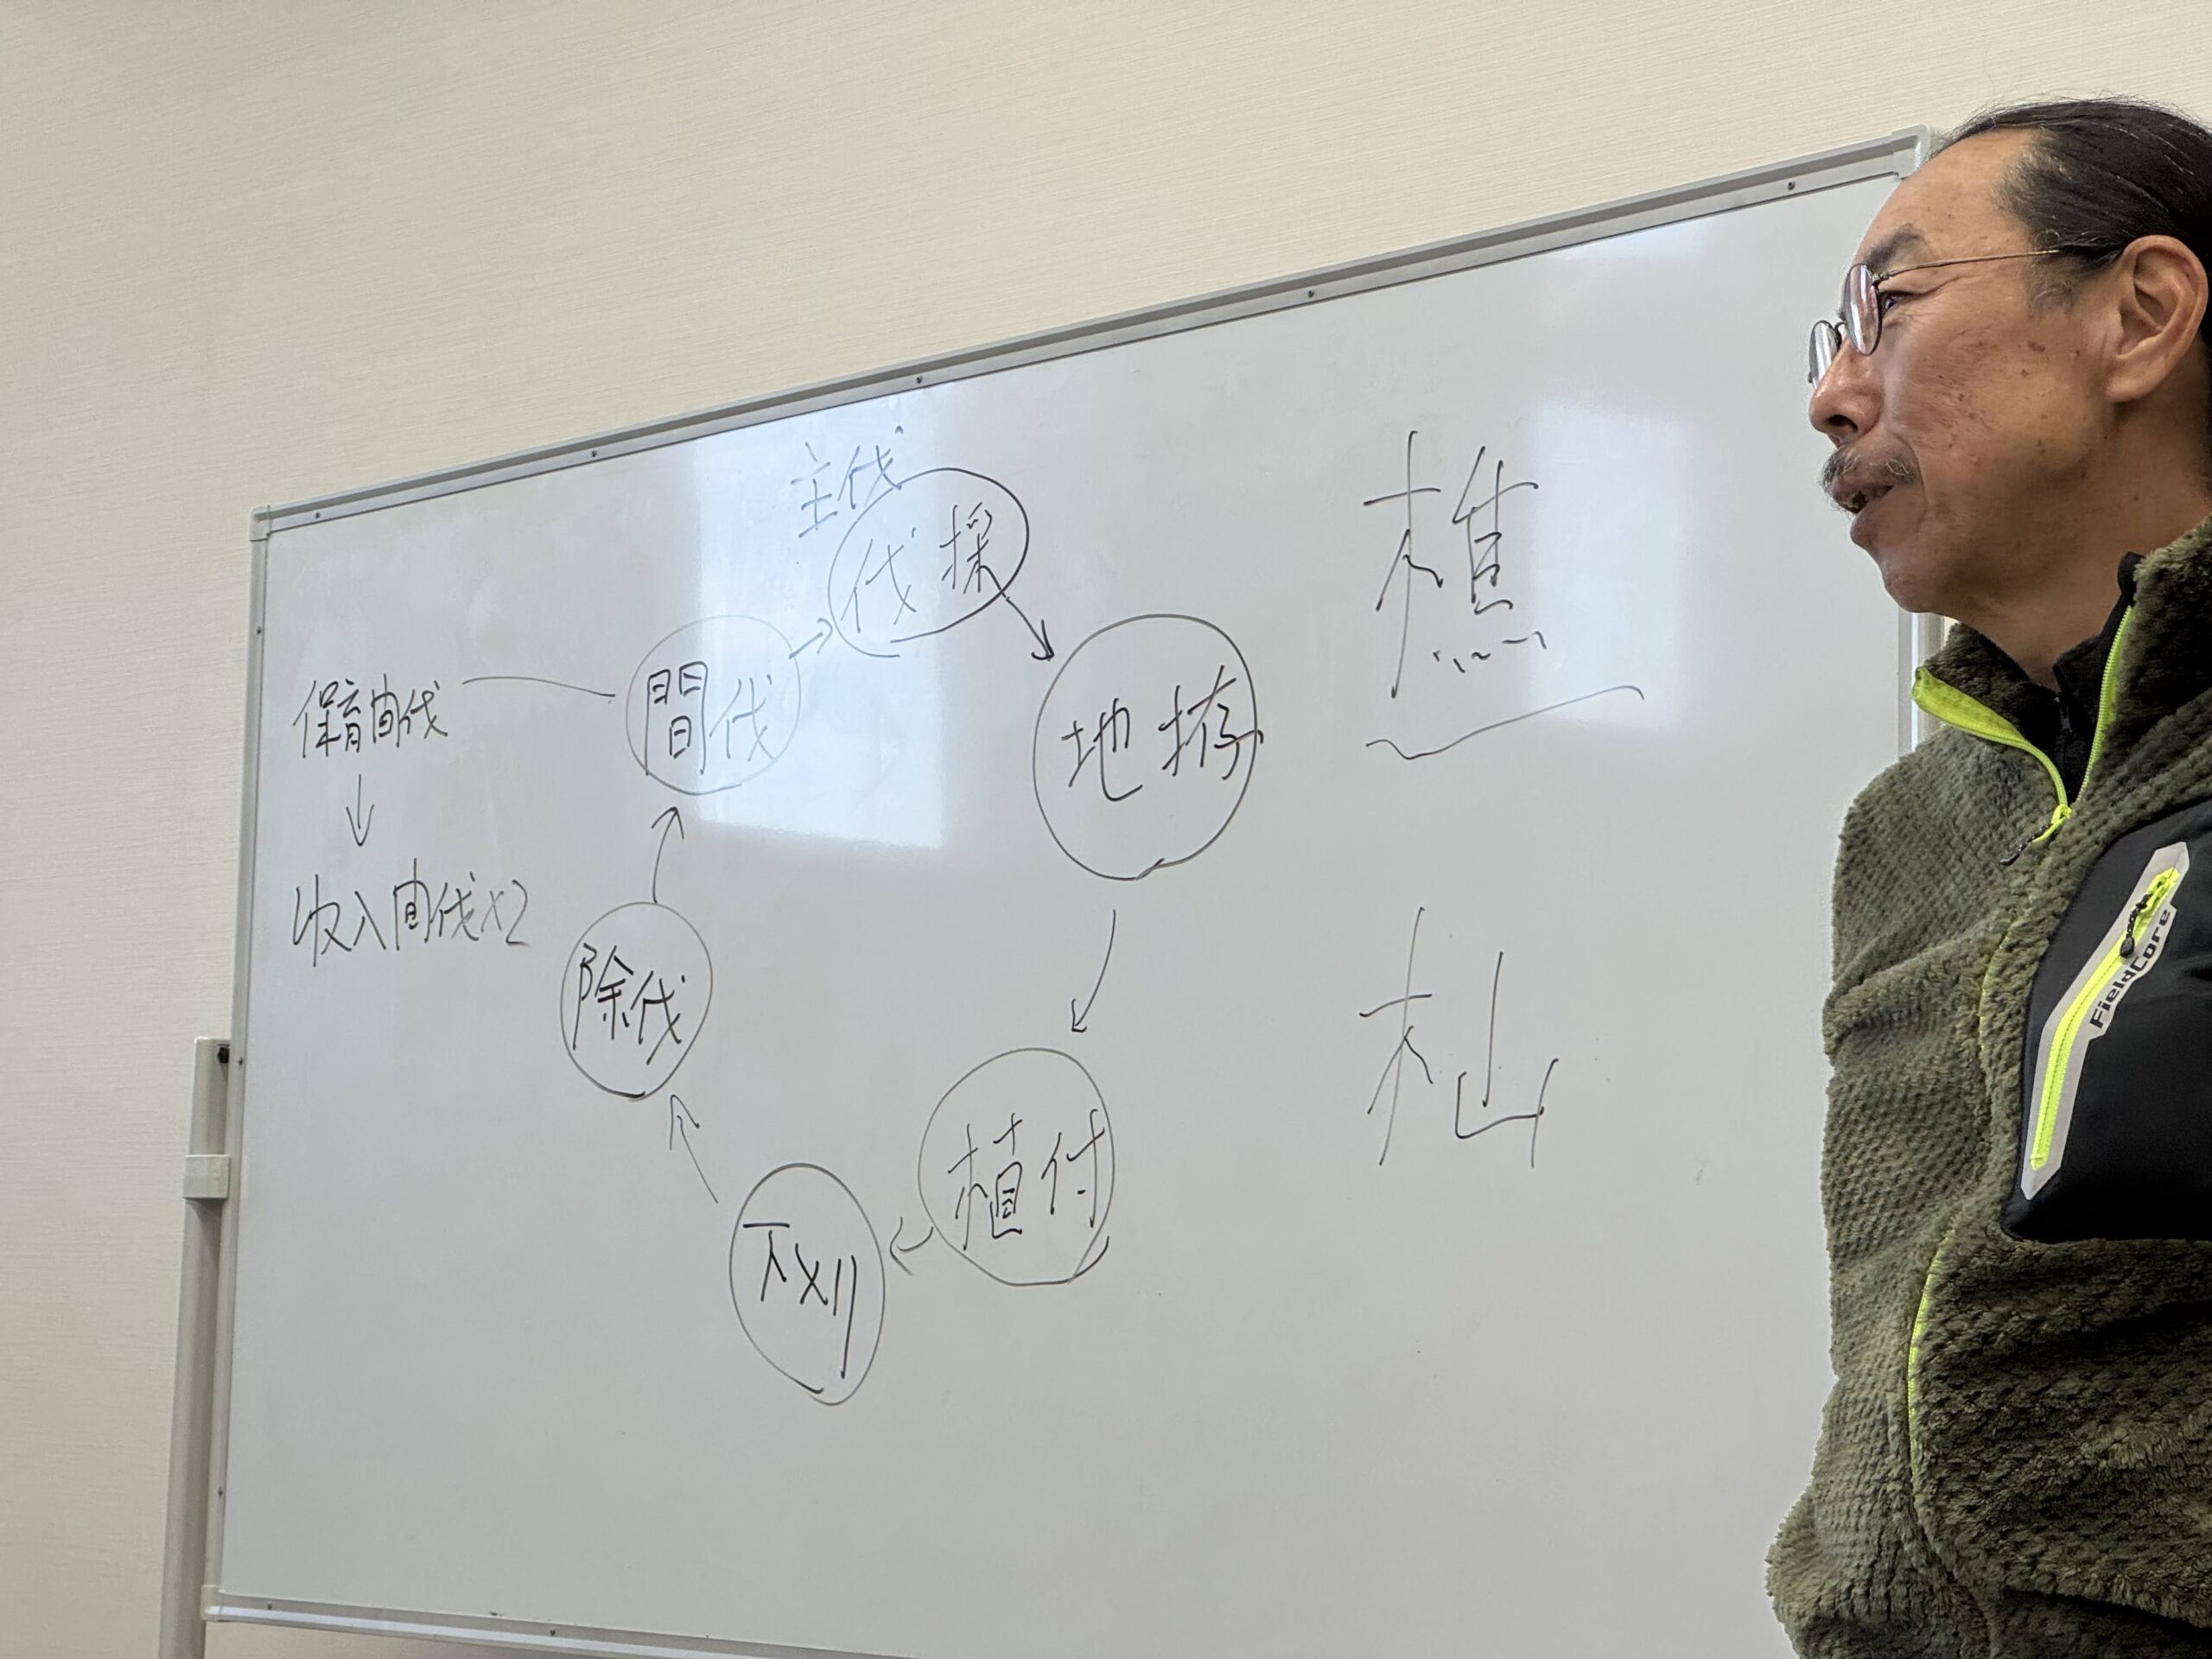 主伐
伐採
地拵
植付
下刈
除伐
間伐
保育间伐
↓
収入间伐×2
樵
杣
FieldCore